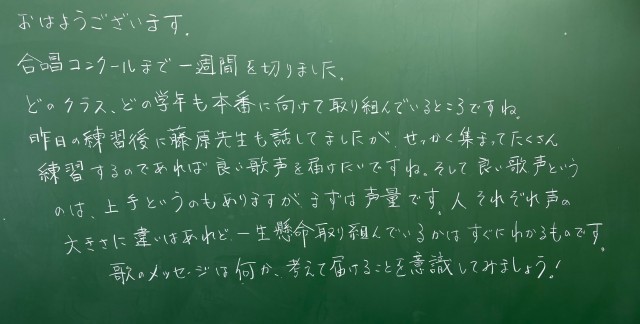 おはようございます.
合唱コンクールまで一週間を切りました.
どのクラス、どの学年も本番に向けて取り組んでいるところですね。
昨日の練習後に藤原先生も話してましたが、せっかく集まってたくさん
練習するのであれば良い歌声を届けたいですね。そして良い歌声という
のは、上手というのもありますが、まずは声量です。人それぞれ声の
大きさに違いはあれど、一生懸命取り組んでいるかはすぐにわかるものです。
歌のメッセージは何か、考えて届けることを意識してみましょう!